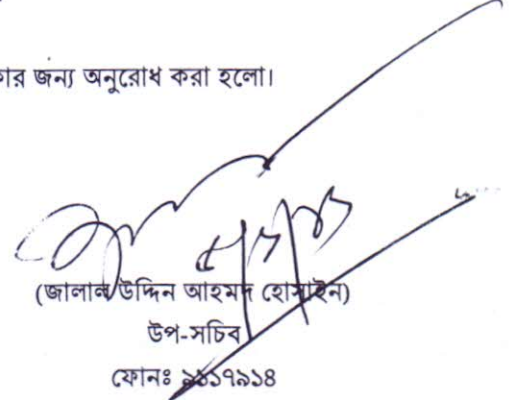 ার জন্য অনুরোধ করা হলো।
(জালাল উদ্দিন আহমদ হোসাইন)
উপ-সচিব
ফোনঃ